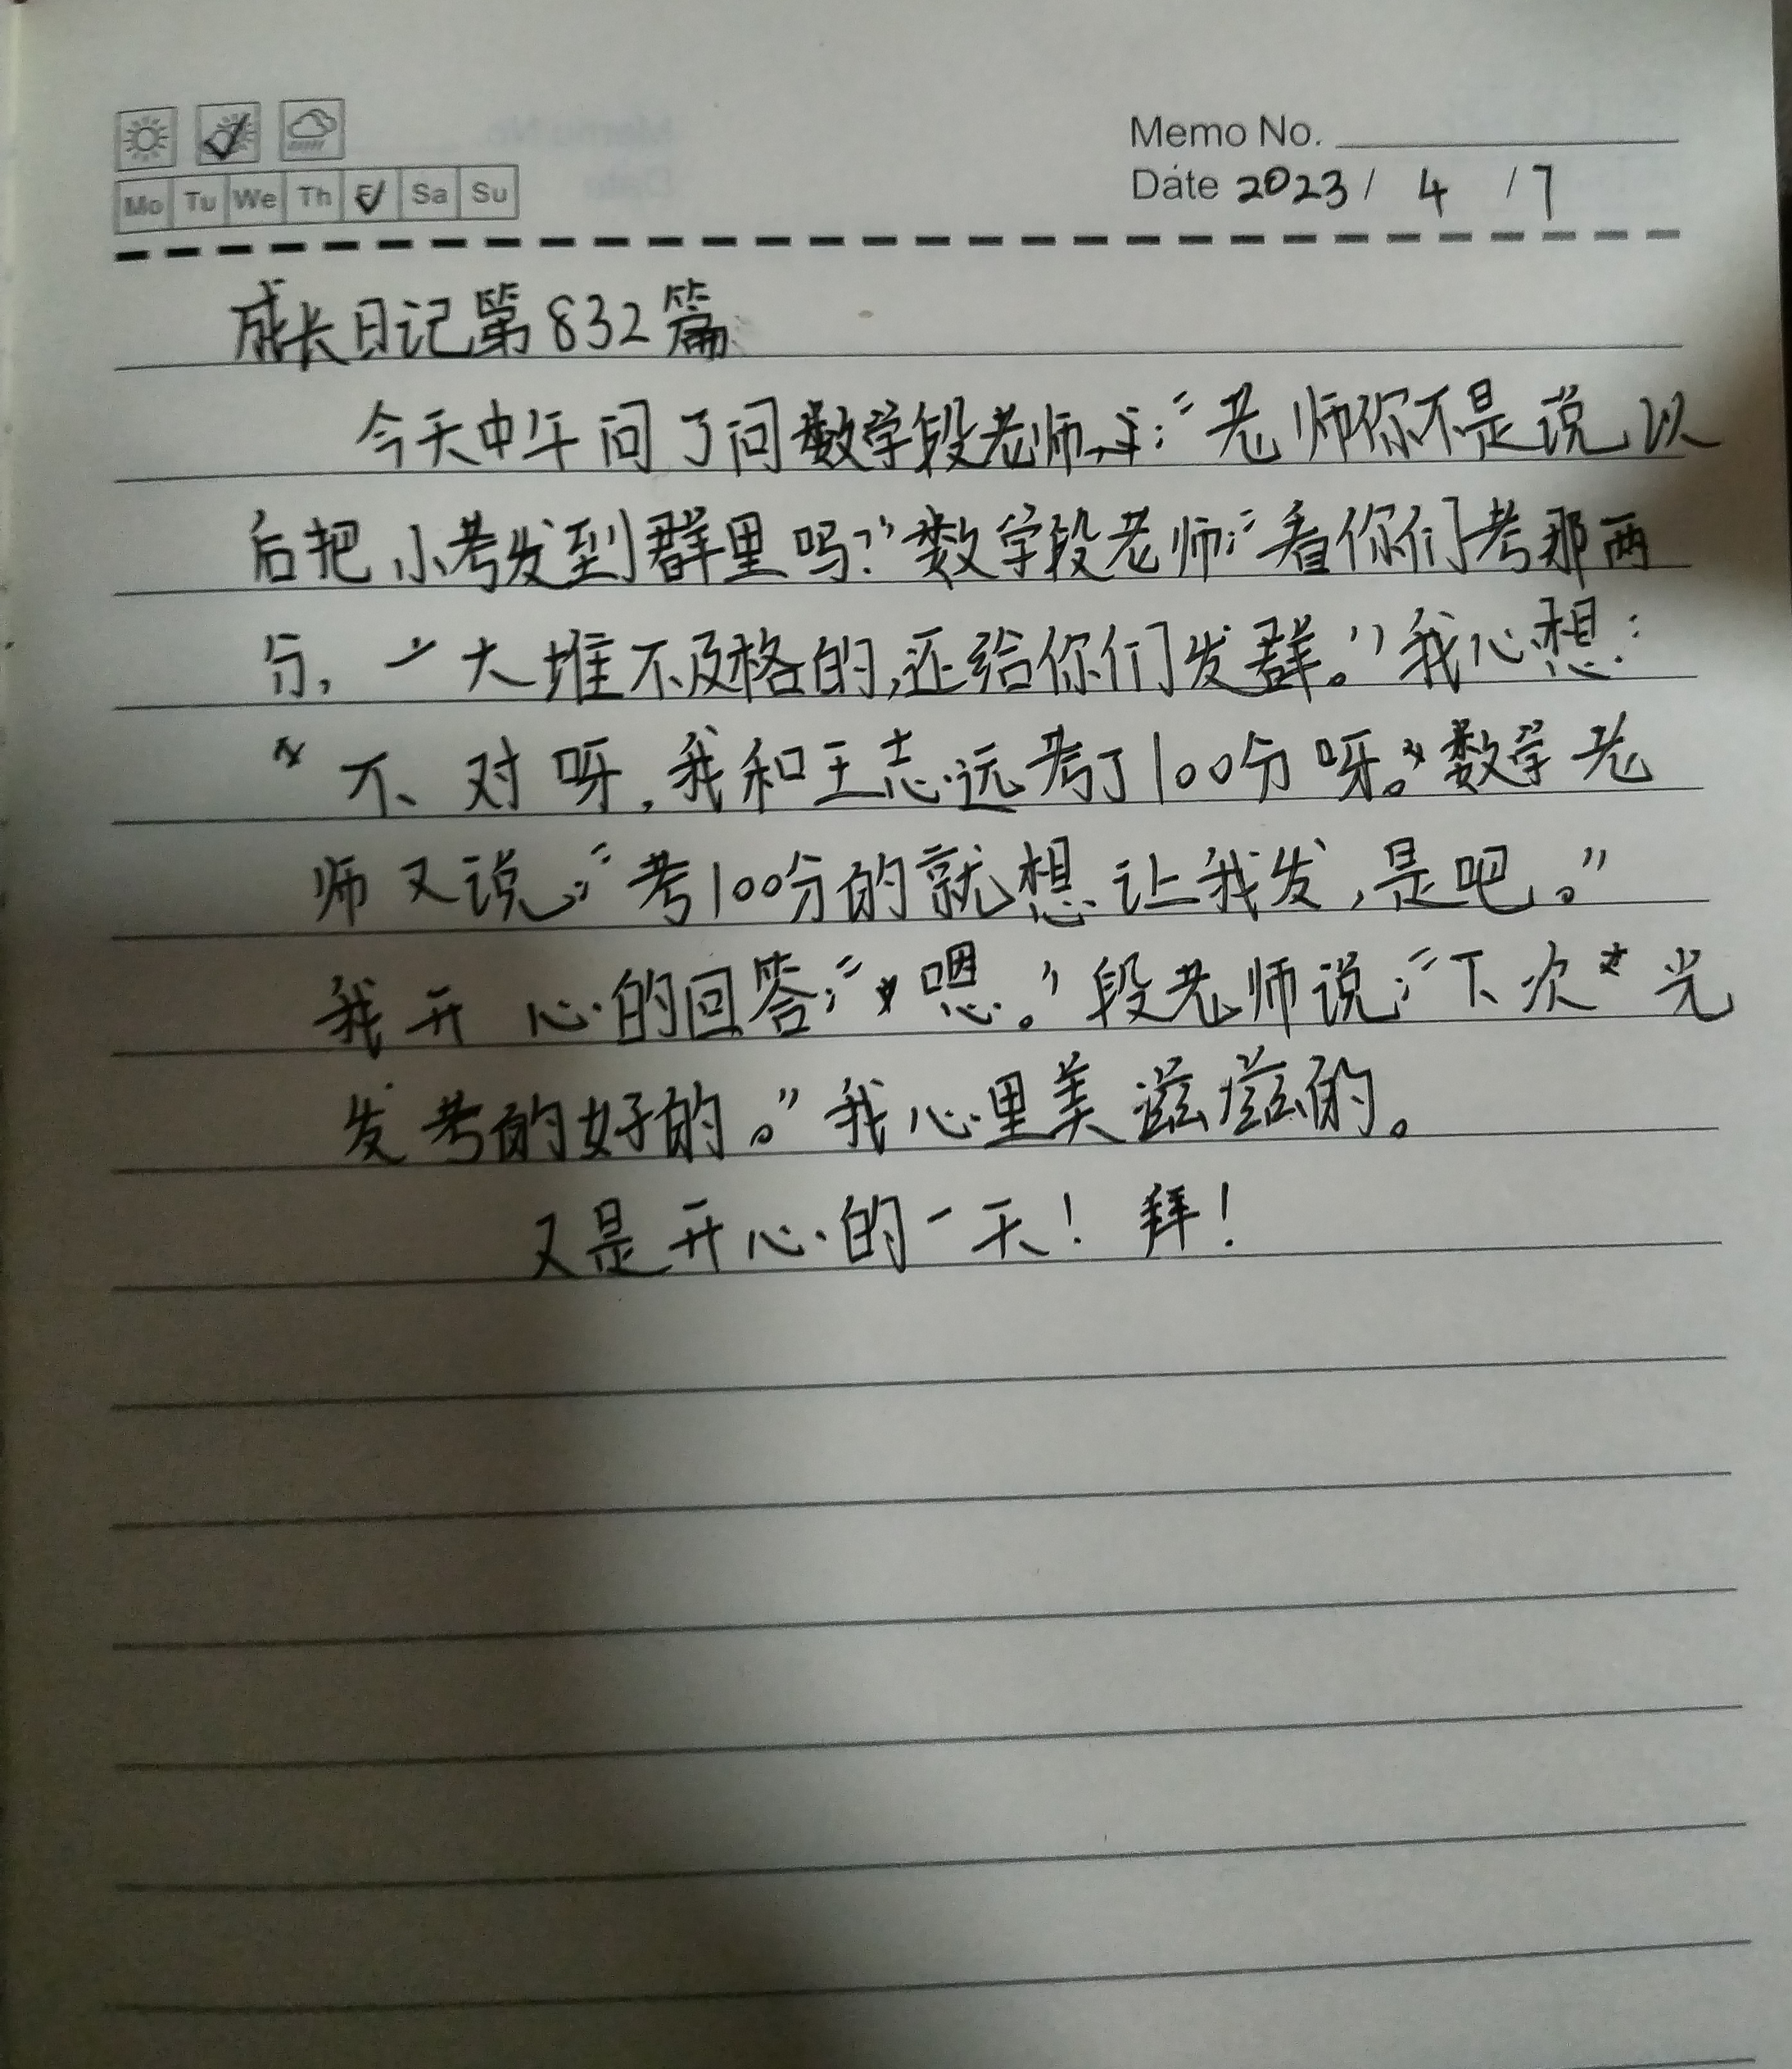 Memo No.
Mo Tu We Th Sa Su
Date 2023 / 4 / 7
成长日记第832篇
今天中午问了问数学段老师:“老师你不是说以
后把小考发到群里吗?”数学段老师:“看你们考那两
分,一大堆不及格的,还给你们发群。”我心想:
“不对呀,我和王志远考了100分呀。”数学老
师又说:“考100分的就想让我发,是吧。”
我开心的回答:“嗯。”段老师说:“下次光
发考的好的。”我心里美滋滋的。
又是开心的一天!拜!